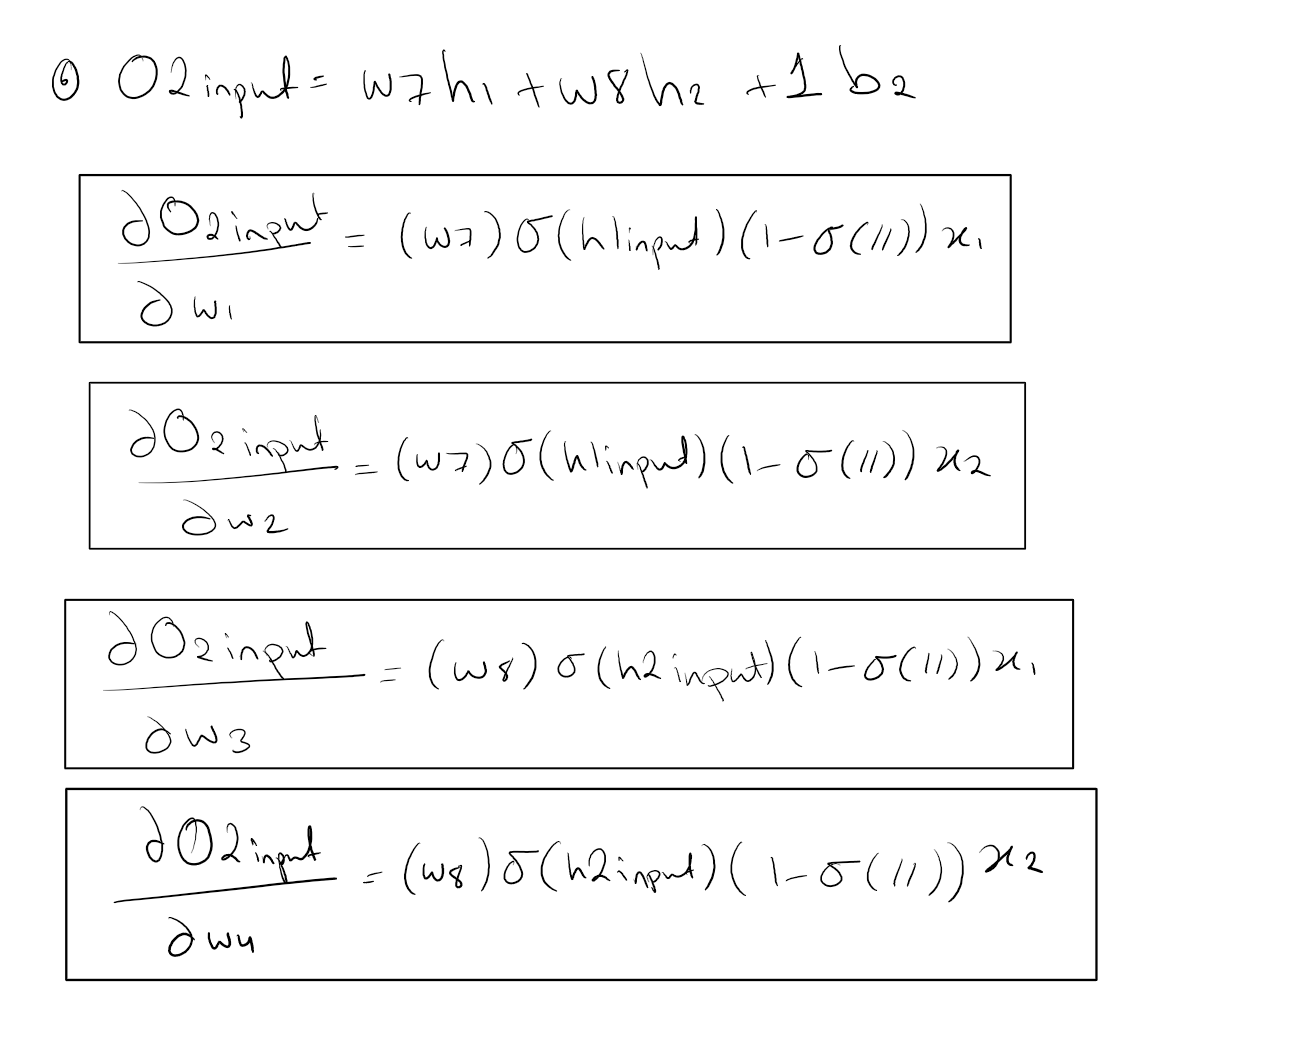 ⑥ O2input = w7h1 + w8h2 + 1 b2
∂O2input / ∂w1 = (w7) σ(h1input) (1-σ(//)) x1
∂O2input / ∂w2 = (w7) σ(h1input) (1-σ(//)) x2
∂O2input / ∂w3 = (w8) σ(h2input) (1-σ(//)) x1
∂O2input / ∂w4 = (w8) σ(h2input) (1-σ(//)) x2